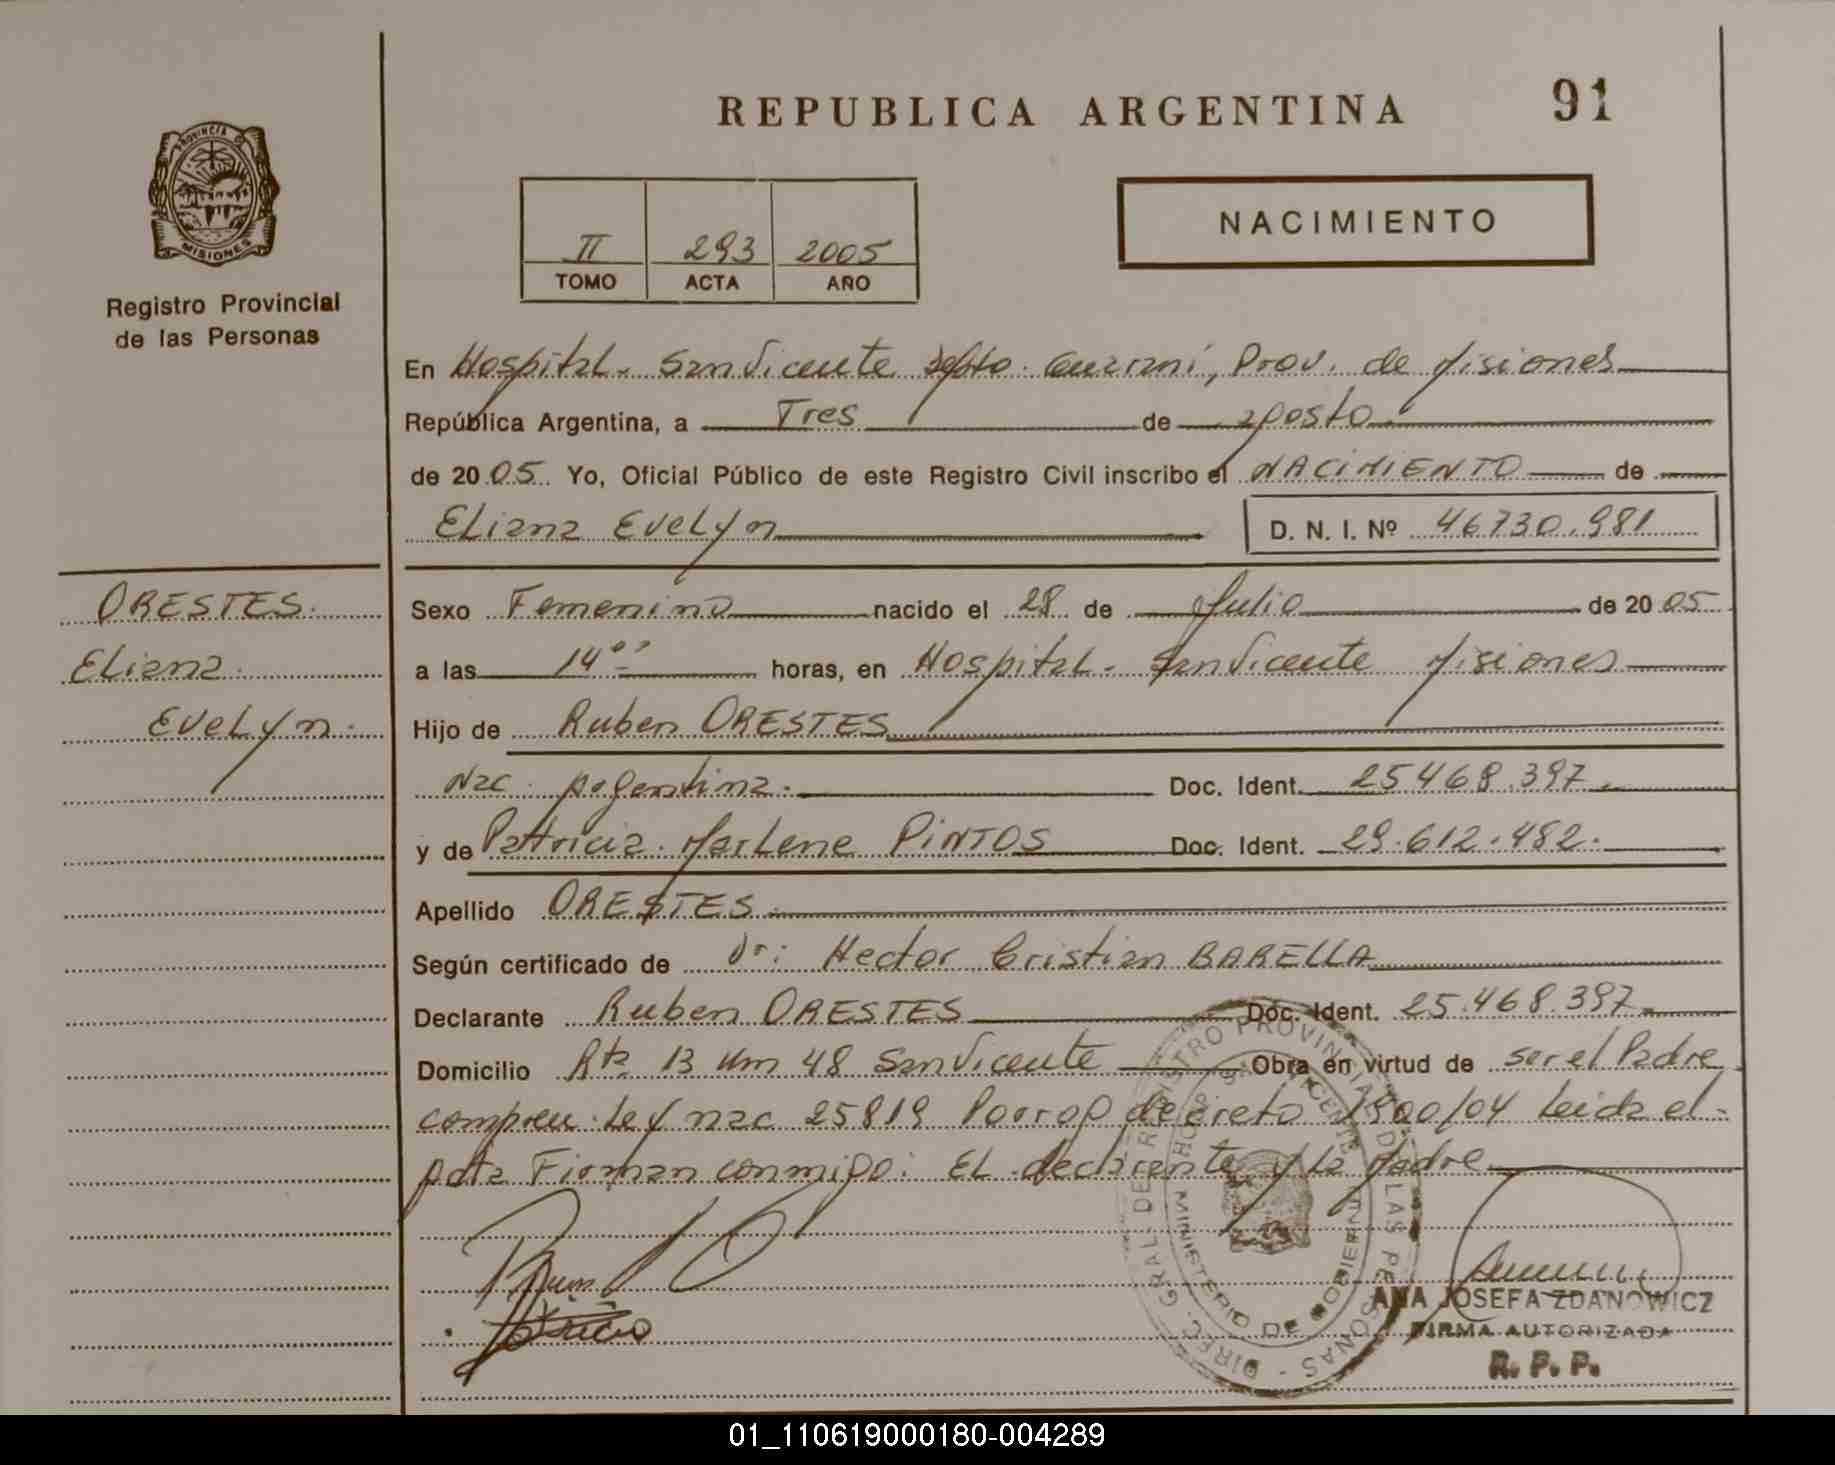 REPUBLICA ARGENTINA
91
PROVINCIA DE
MISIONES
Registro Provincial
de las Personas
II 293 2005
TOMO ACTA AÑO
NACIMIENTO
En Hospital. San Vicente Depto. Guarani, Prov. de Misiones
República Argentina, a Tres de agosto
de 2005. Yo, Oficial Público de este Registro Civil inscribo el NACIMIENTO de
Eliana Evelyn
D. N. I. Nº 46.730.981
ORESTES.
Eliana.
Evelyn.
Sexo Femenino nacido el 28 de Julio de 2005
a las 14 horas, en Hospital. San Vicente Misiones
Hijo de Ruben ORESTES
Nac. Argentina. Doc. Ident. 25.468.397.
y de Patricia Marlene PINTOS Doc. Ident. 29.612.482.
Apellido ORESTES.
Según certificado de Dr: Hector Cristian BARELLA
Declarante Ruben ORESTES Doc. Ident. 25.468.397.
Domicilio Rta 13 Km 48 San Vicente Obra en virtud de ser el Padre
Ley nac 25819 Porrog decreto 1900/04 Leida el
acta Firman conmigo: El declarante y la Madre
DIREC. GRAL. DE REGISTRO PROVINCIAL DE LAS PERSONAS
MINISTERIO DE GOBIERNO
ANA JOSEFA ZDANOWICZ
FIRMA AUTORIZADA
R. P. P.
01_110619000180-004289